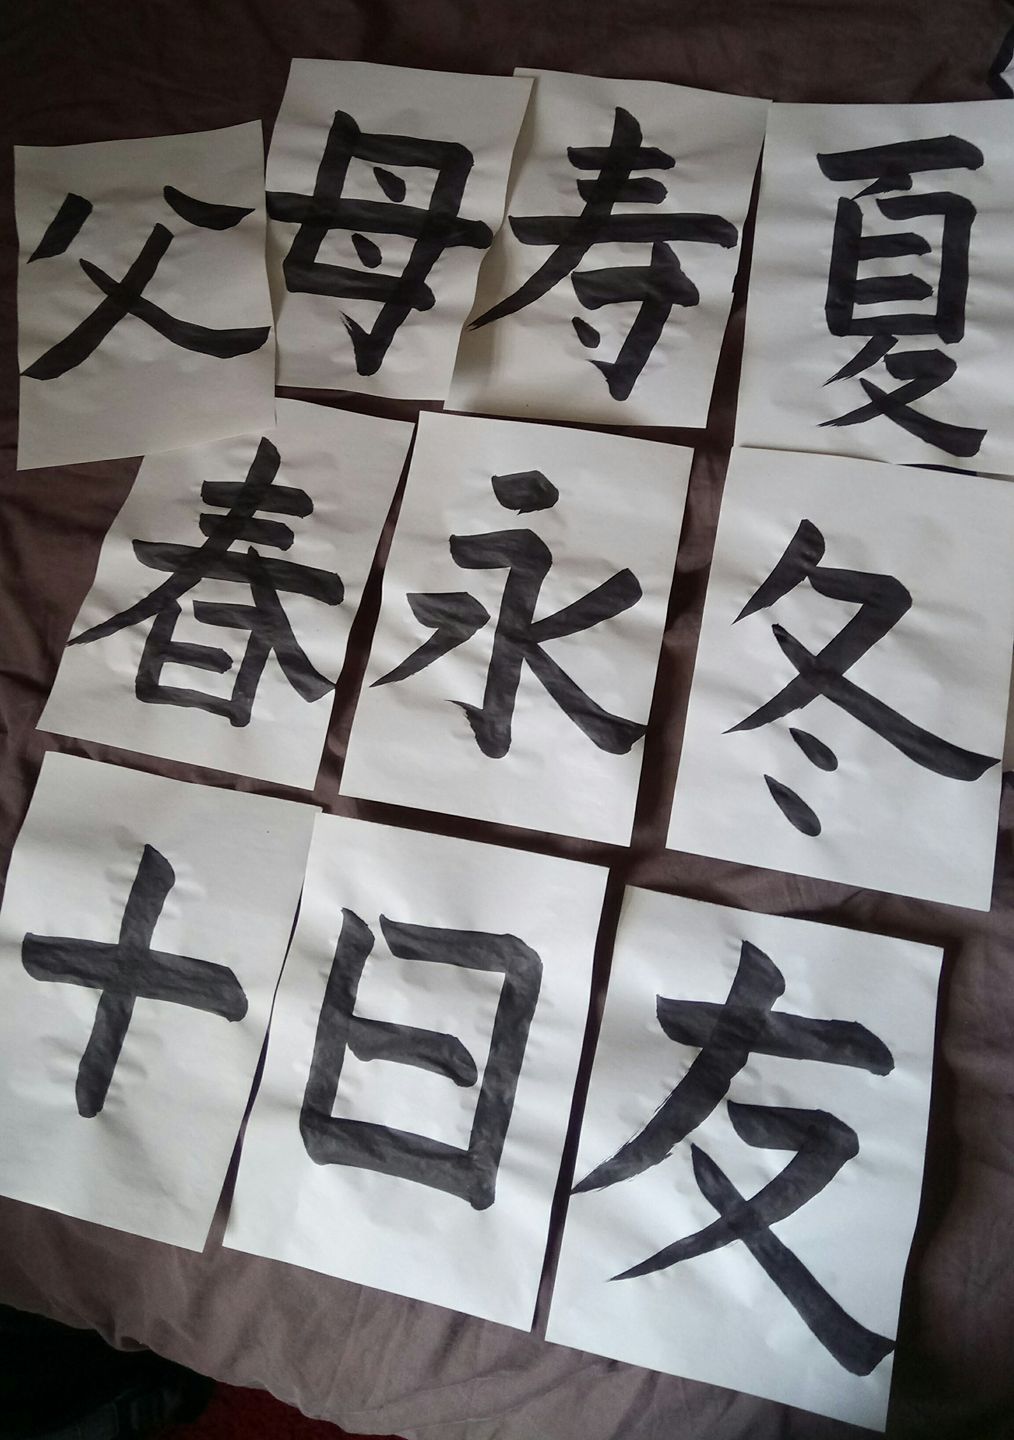 父母寿夏
春永冬
十日友